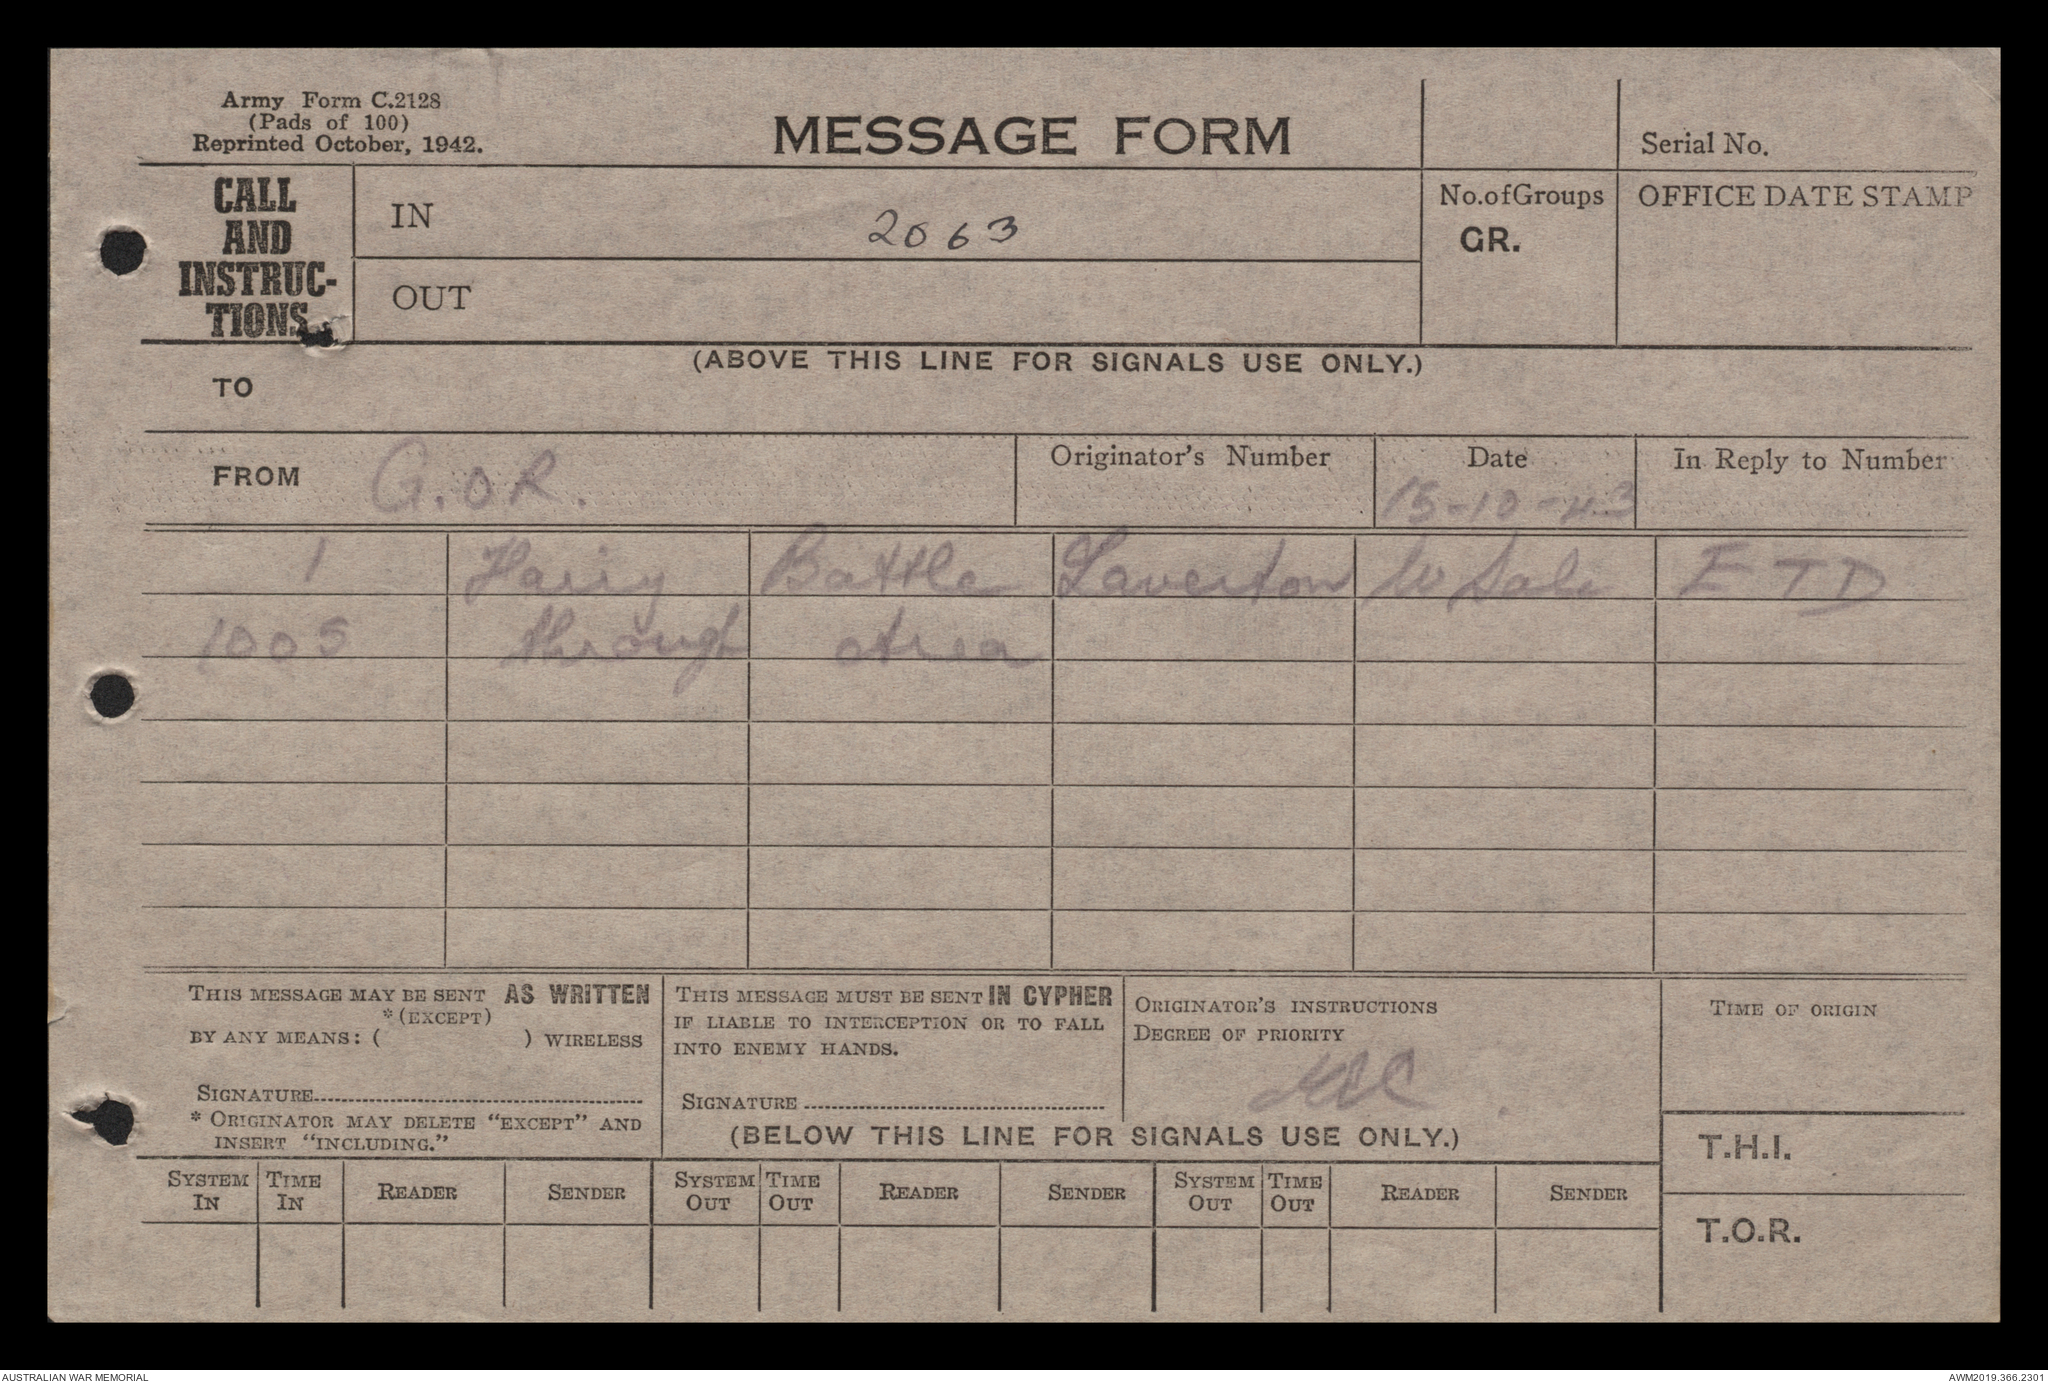 Army Form C.2128
(Pads of 100)
Reprinted October, 1942.
MESSAGE FORM
Serial No.
CALL
AND
INSTRUC-
TIONS
IN 2063
OUT
No. of Groups
GR.
OFFICE DATE STAMP
(ABOVE THIS LINE FOR SIGNALS USE ONLY.)
TO
FROM G.O.R.
Originator's Number
Date
15-10-43
In Reply to Number
1 Fairy Battle Laverton W Sale ETD
1005 through Area
THIS MESSAGE MAY BE SENT AS WRITTEN
*(EXCEPT)
BY ANY MEANS: ( ) WIRELESS
SIGNATURE
* ORIGINATOR MAY DELETE "EXCEPT" AND
INSERT "INCLUDING."
THIS MESSAGE MUST BE SENT IN CYPHER
IF LIABLE TO INTERCEPTION OR TO FALL
INTO ENEMY HANDS.
SIGNATURE
ORIGINATOR'S INSTRUCTIONS
DEGREE OF PRIORITY
TIME OF ORIGIN
(BELOW THIS LINE FOR SIGNALS USE ONLY.)
T.H.I.
T.O.R.
SYSTEM IN TIME IN READER SENDER SYSTEM OUT TIME OUT READER SENDER SYSTEM OUT TIME OUT READER SENDER
AUSTRALIAN WAR MEMORIAL
AWM2019.366.2301